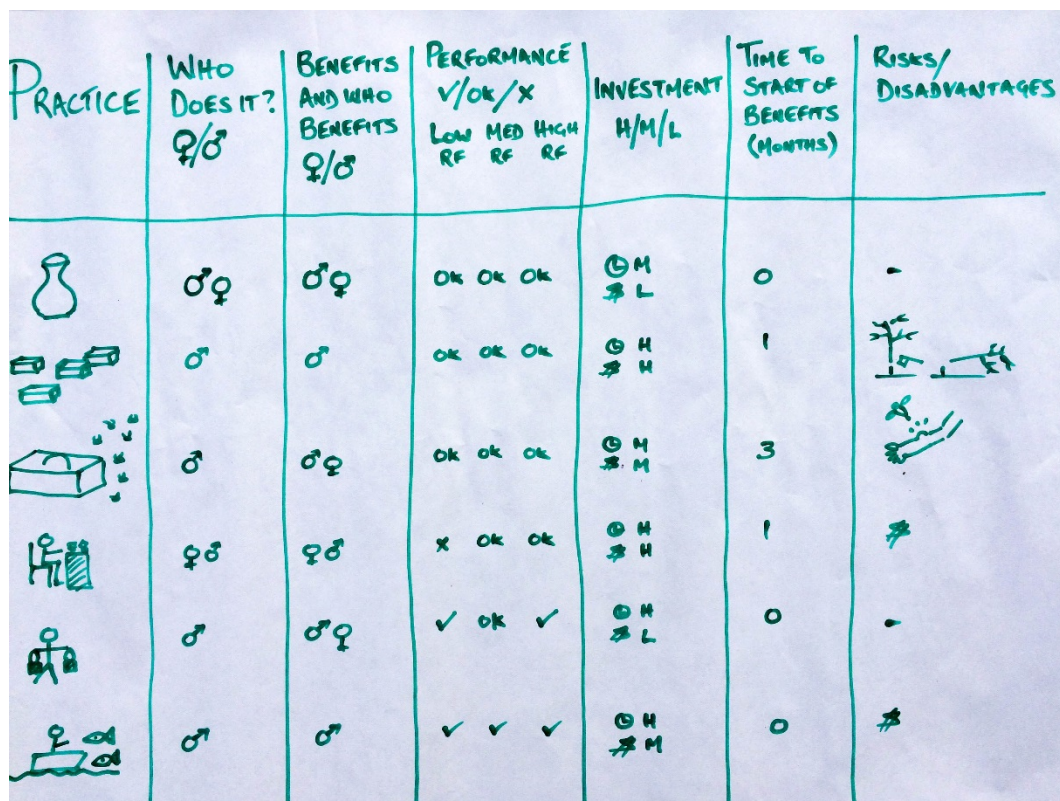 PRACTICE
WHO
DOES IT?
♀/♂
BENEFITS
AND WHO
BENEFITS
♀/♂
PERFORMANCE
✓/OK/X
LOW MED HIGH
RF RF RF
INVESTMENT
H/M/L
TIME TO
START OF
BENEFITS
(MONTHS)
RISKS/
DISADVANTAGES
♂♀ ♂♀ OK OK OK M 0 -
$ L
♂ ♂ OK OK OK H 1
$ H
♂ ♂♀ OK OK OK M 3
$ M
♀♂ ♀♂ X OK OK H 1 $
$ H
♂ ♂♀ ✓ OK ✓ H 0 -
$ L
♂ ♂ ✓ ✓ ✓ H 0 $
$ M